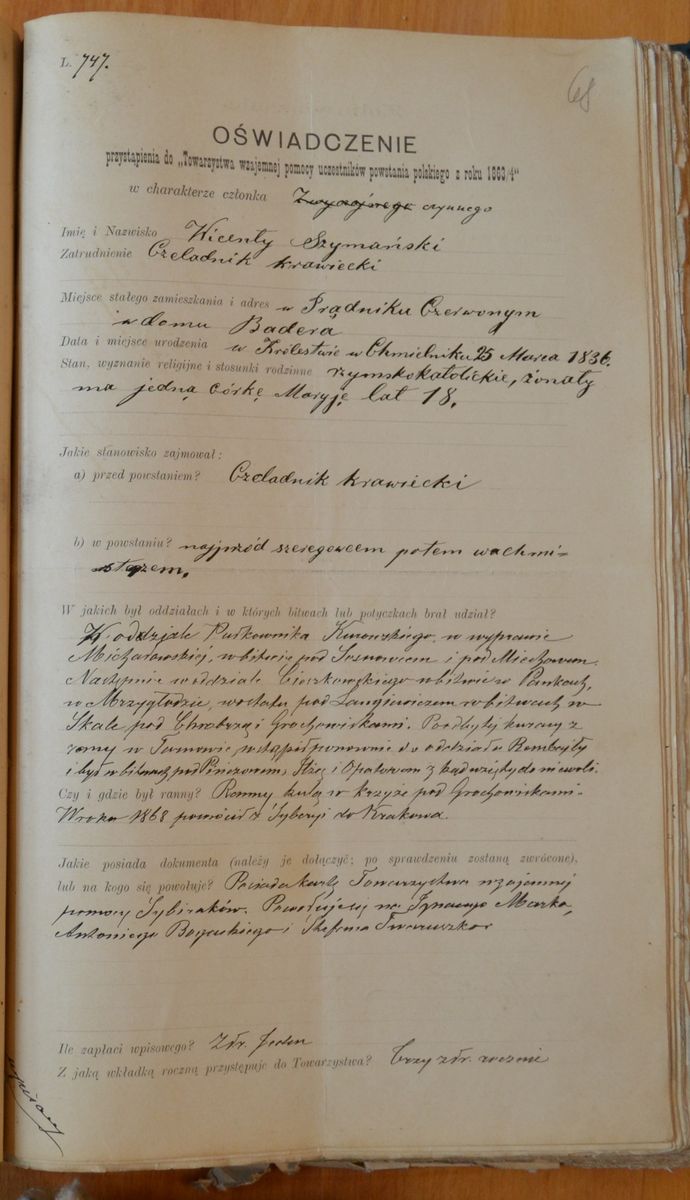 L. 747.
68
OŚWIADCZENIE
przystąpienia do „Towarzystwa wzajemnej pomocy uczestników powstania polskiego z roku 1863/4"
w charakterze członka Zwyczajnego czynnego
Imię i Nazwisko Wicenty Szymański
Zatrudnienie Czeladnik krawiecki
Miejsce stałego zamieszkania i adres w Prądniku Czerwonym
w domu Badera
Data i miejsce urodzenia w Królestwie w Chmielniku 25 Marca 1836.
Stan, wyznanie religijne i stosunki rodzinne rzymskokatolickie, żonaty
ma jedną córkę Maryję lat 18.
Jakie stanowisko zajmował:
a) przed powstaniem? Czeladnik krawiecki
b) w powstaniu? najprzód szeregowcem potem wachmi-
strzem.
W jakich był oddziałach i w których bitwach lub potyczkach brał udział?
W oddziale Pułkownika Kurowskiego, w wyprawie
Michałowskiej, w bitwie pod Sosnowcem i pod Miechowem.
Następnie w oddziale Cieszkowskiego w bitwie w Pankach,
w Mrzygłodzie, został pod Langiewiczem w bitwach w
Skale pod Chrobrzą i Grochowiskami. Po odbytej kuracyi z
rany w Tarnowie wstąpił ponownie do oddziału Rembajły
i był w bitwach pod Pińczowem, Iłżą i Opatowem z kąd wzięty do niewoli.
Czy i gdzie był ranny? Ranny kulą w krzyże pod Grochowiskami.
W roku 1868 powrócił z Syberyi do Krakowa.
Jakie posiada dokumenta (należy je dołączyć; po sprawdzeniu zostaną zwrócone),
lub na kogo się powołuje? Posiada kartę Towarzystwa wzajemnej
pomocy Sybiraków. Powołuje się na Ignacego Marka,
Antoniego Boguckiego i Stefana
Ile zapłaci wpisowego? Złr. jeden
Z jaką wkładką roczną przystępuje do Towarzystwa? trzy złr. rocznie
wpisany